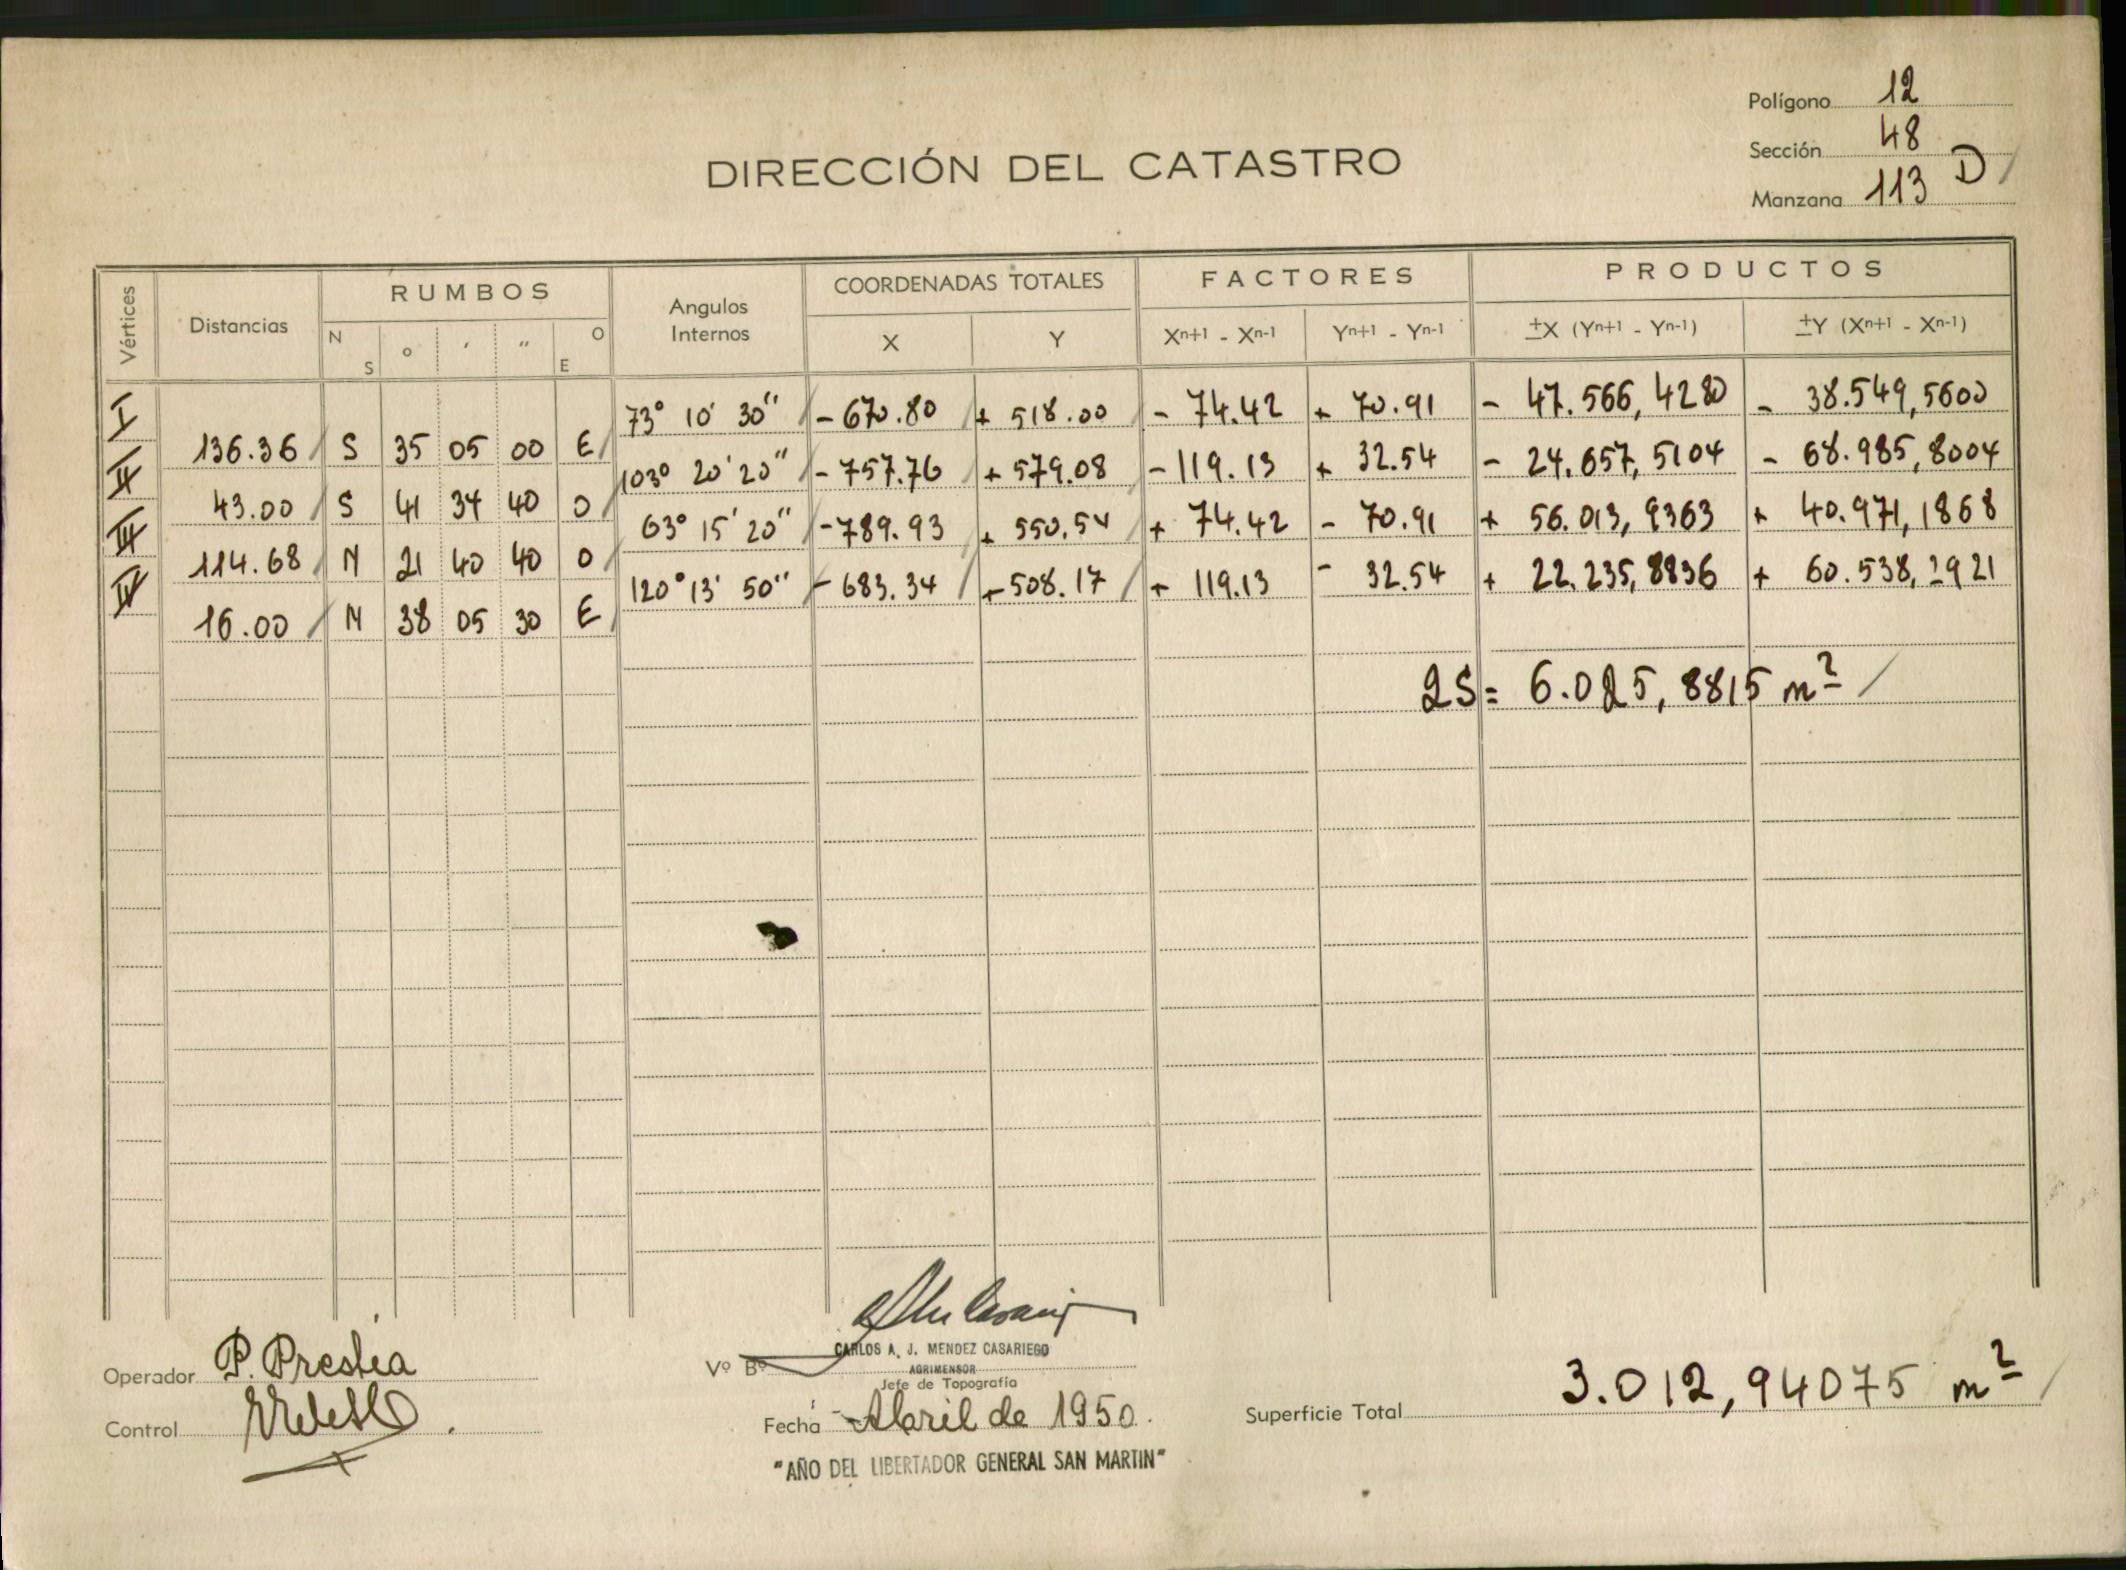 Polígono 12
Sección 48
Manzana 113 D
DIRECCIÓN DEL CATASTRO
Vértices Distancias RUMBOS Angulos Internos COORDENADAS TOTALES FACTORES PRODUCTOS
N S ° ′ ″ O E X Y Xn+1 - Xn-1 Yn+1 - Yn-1 ±X (Yn+1 - Yn-1) ±Y (Xn+1 - Xn-1)
I 73° 10' 30" - 670.80 + 518.00 - 74.42 + 70.91 - 47.566,4280 - 38.549,5600
136.36 S 35 05 00 E
II 103° 20' 20" - 757.76 + 579.08 - 119.13 + 32.54 - 24.657,5104 - 68.985,8004
43.00 S 41 34 40 O
III 63° 15' 20" - 789.93 + 550.54 + 74.42 - 70.91 + 56.013,9363 + 40.971,1868
114.68 N 21 40 40 O
IV 120° 13' 50" - 683.34 + 508.17 + 119.13 - 32.54 + 22.235,8836 + 60.538,2921
16.00 N 38 05 30 E
2S = 6.025,8815 m²
Operador P. Prestia
Control
Vº Bº
CARLOS A. J. MENDEZ CASARIEGO
AGRIMENSOR
Jefe de Topografía
Fecha Abril de 1950.
"AÑO DEL LIBERTADOR GENERAL SAN MARTIN"
Superficie Total 3.012,94075 m²